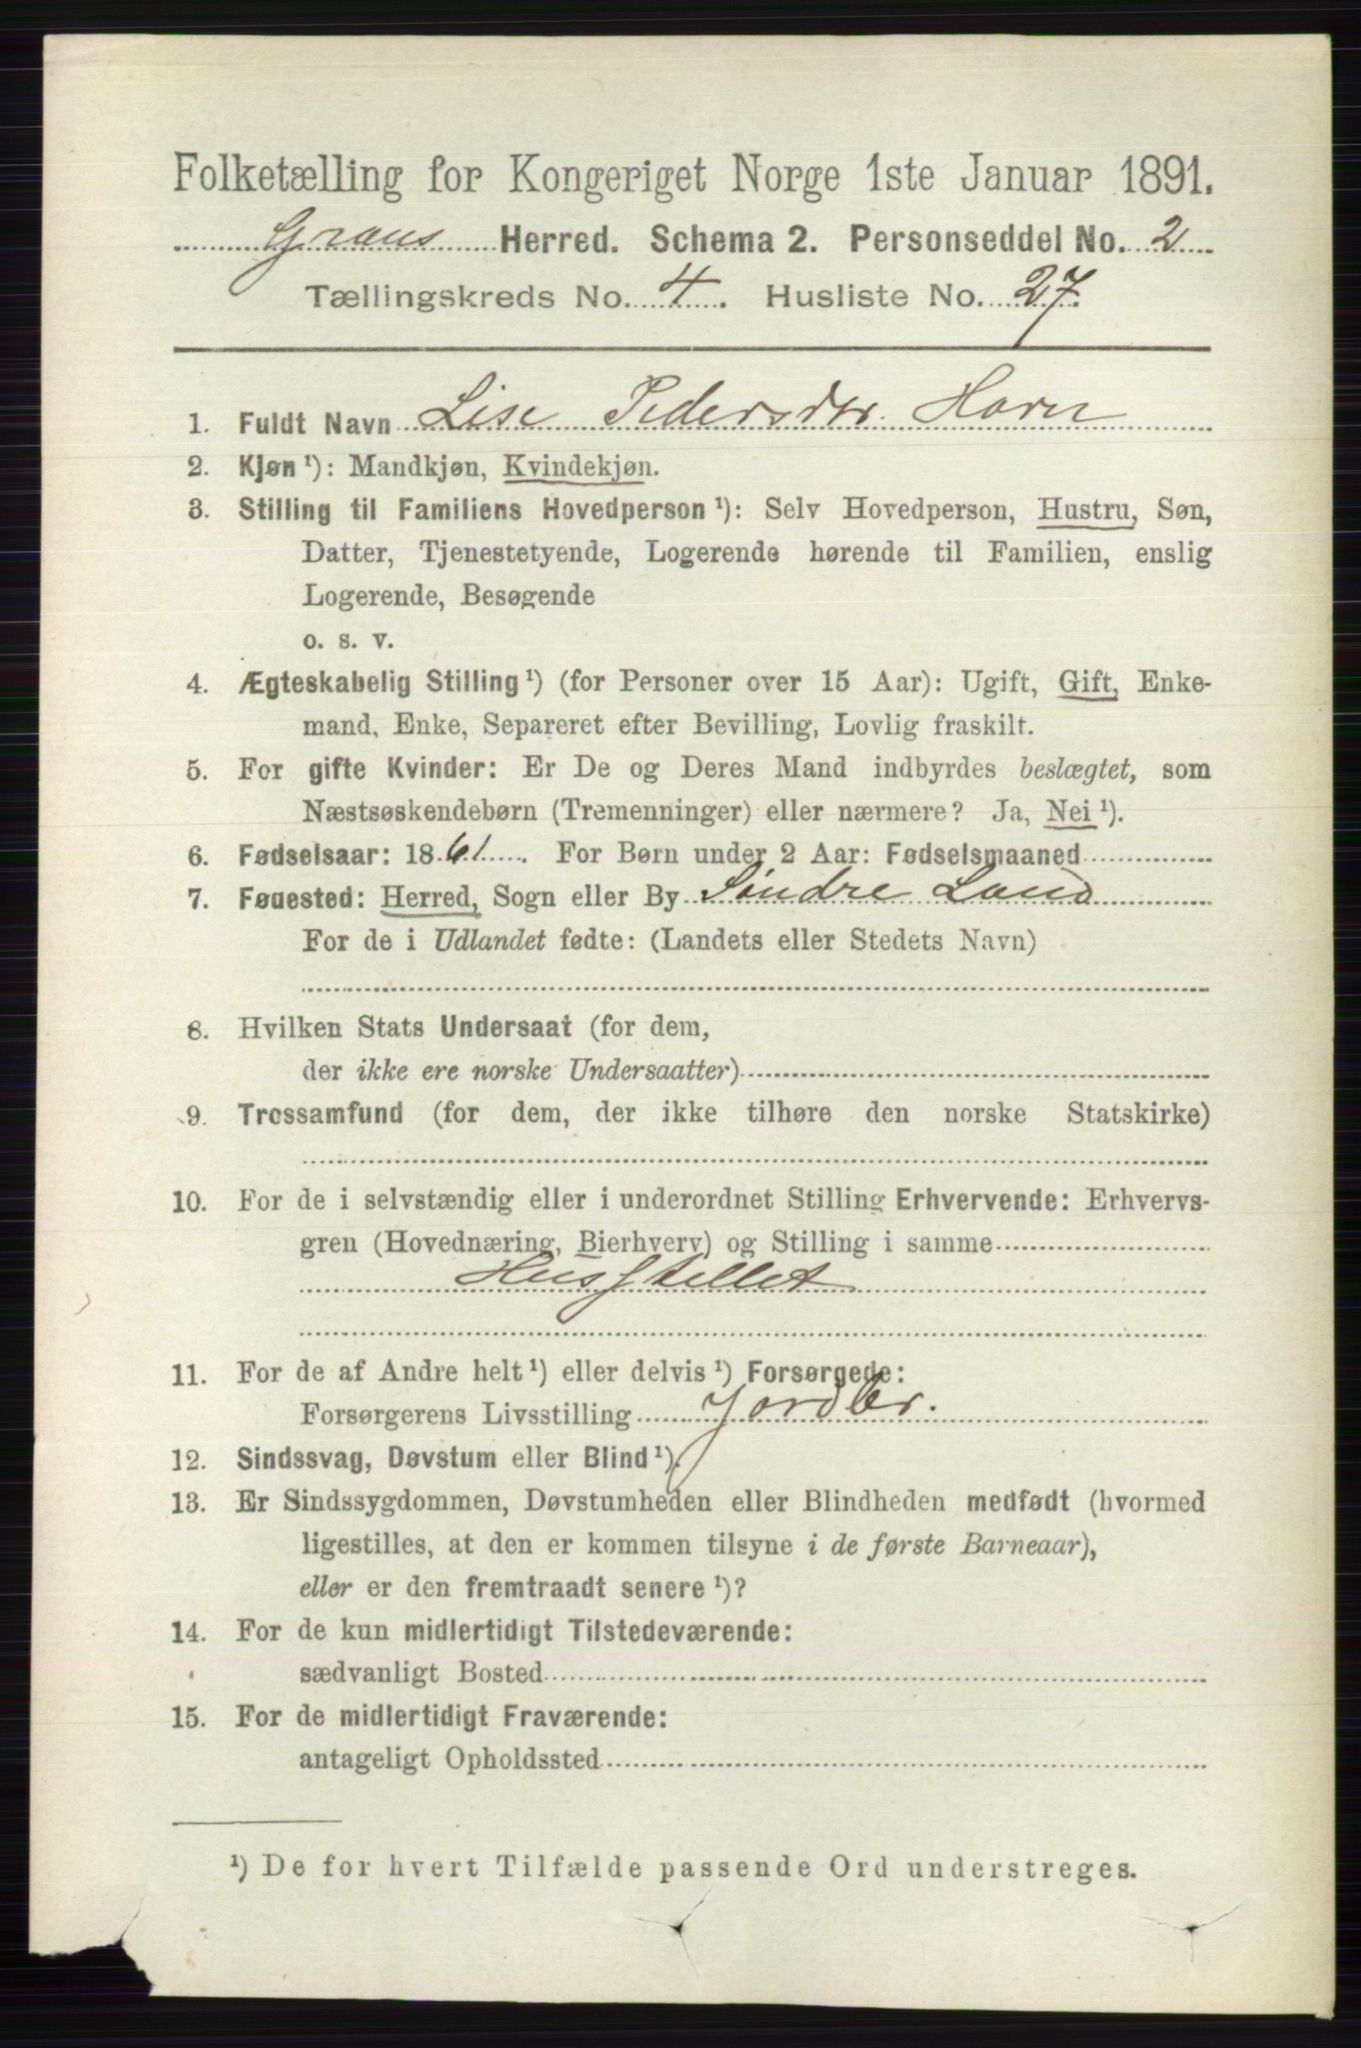 Folketælling for Kongeriget Norge 1ste Januar 1891.
Grans Herred. Schema 2. Personseddel No. 2
Tællingskreds No. 4. Husliste No. 27.
1. Fuldt Navn Lise Pedersdtr. Horn
2. Kjøn ¹): Mandkjøn, Kvindekjøn.
3. Stilling til Familiens Hovedperson ¹): Selv Hovedperson, Hustru, Søn,
Datter, Tjenestetyende, Logerende hørende til Familien, enslig
Logerende, Besøgende
o. s. v.
4. Ægteskabelig Stilling ¹) (for Personer over 15 Aar): Ugift, Gift, Enke-
mand, Enke, Separeret efter Bevilling, Lovlig fraskilt.
5. For gifte Kvinder: Er De og Deres Mand indbyrdes beslægtet, som
Næstsøskendebørn (Tremenninger) eller nærmere? Ja, Nei ¹).
6. Fødselsaar: 1861. For Børn under 2 Aar: Fødselsmaaned
7. Føuested: Herred, Sogn eller By Søndre Land
For de i Udlandet fødte: (Landets eller Stedets Navn)
8. Hvilken Stats Undersaat (for dem,
der ikke ere norske Undersaatter)
9. Trossamfund (for dem, der ikke tilhøre den norske Statskirke)
10. For de i selvstændig eller i underordnet Stilling Erhvervende: Erhvervs-
gren (Hovednæring, Bierhverv) og Stilling i samme
Husstellet
11. For de af Andre helt ¹) eller delvis ¹) Forsørgede:
Forsørgerens Livsstilling Jordbr.
12. Sindssvag, Døvstum eller Blind ¹).
13. Er Sindssygdommen, Døvstumheden eller Blindheden medfødt (hvormed
ligestilles, at den er kommen tilsyne i de første Barneaar),
eller er den fremtraadt senere ¹)?
14. For de kun midlertidigt Tilstedeværende:
sædvanligt Bosted
15. For de midlertidigt Fraværende:
antageligt Opholdssted
¹) De for hvert Tilfælde passende Ord understreges.